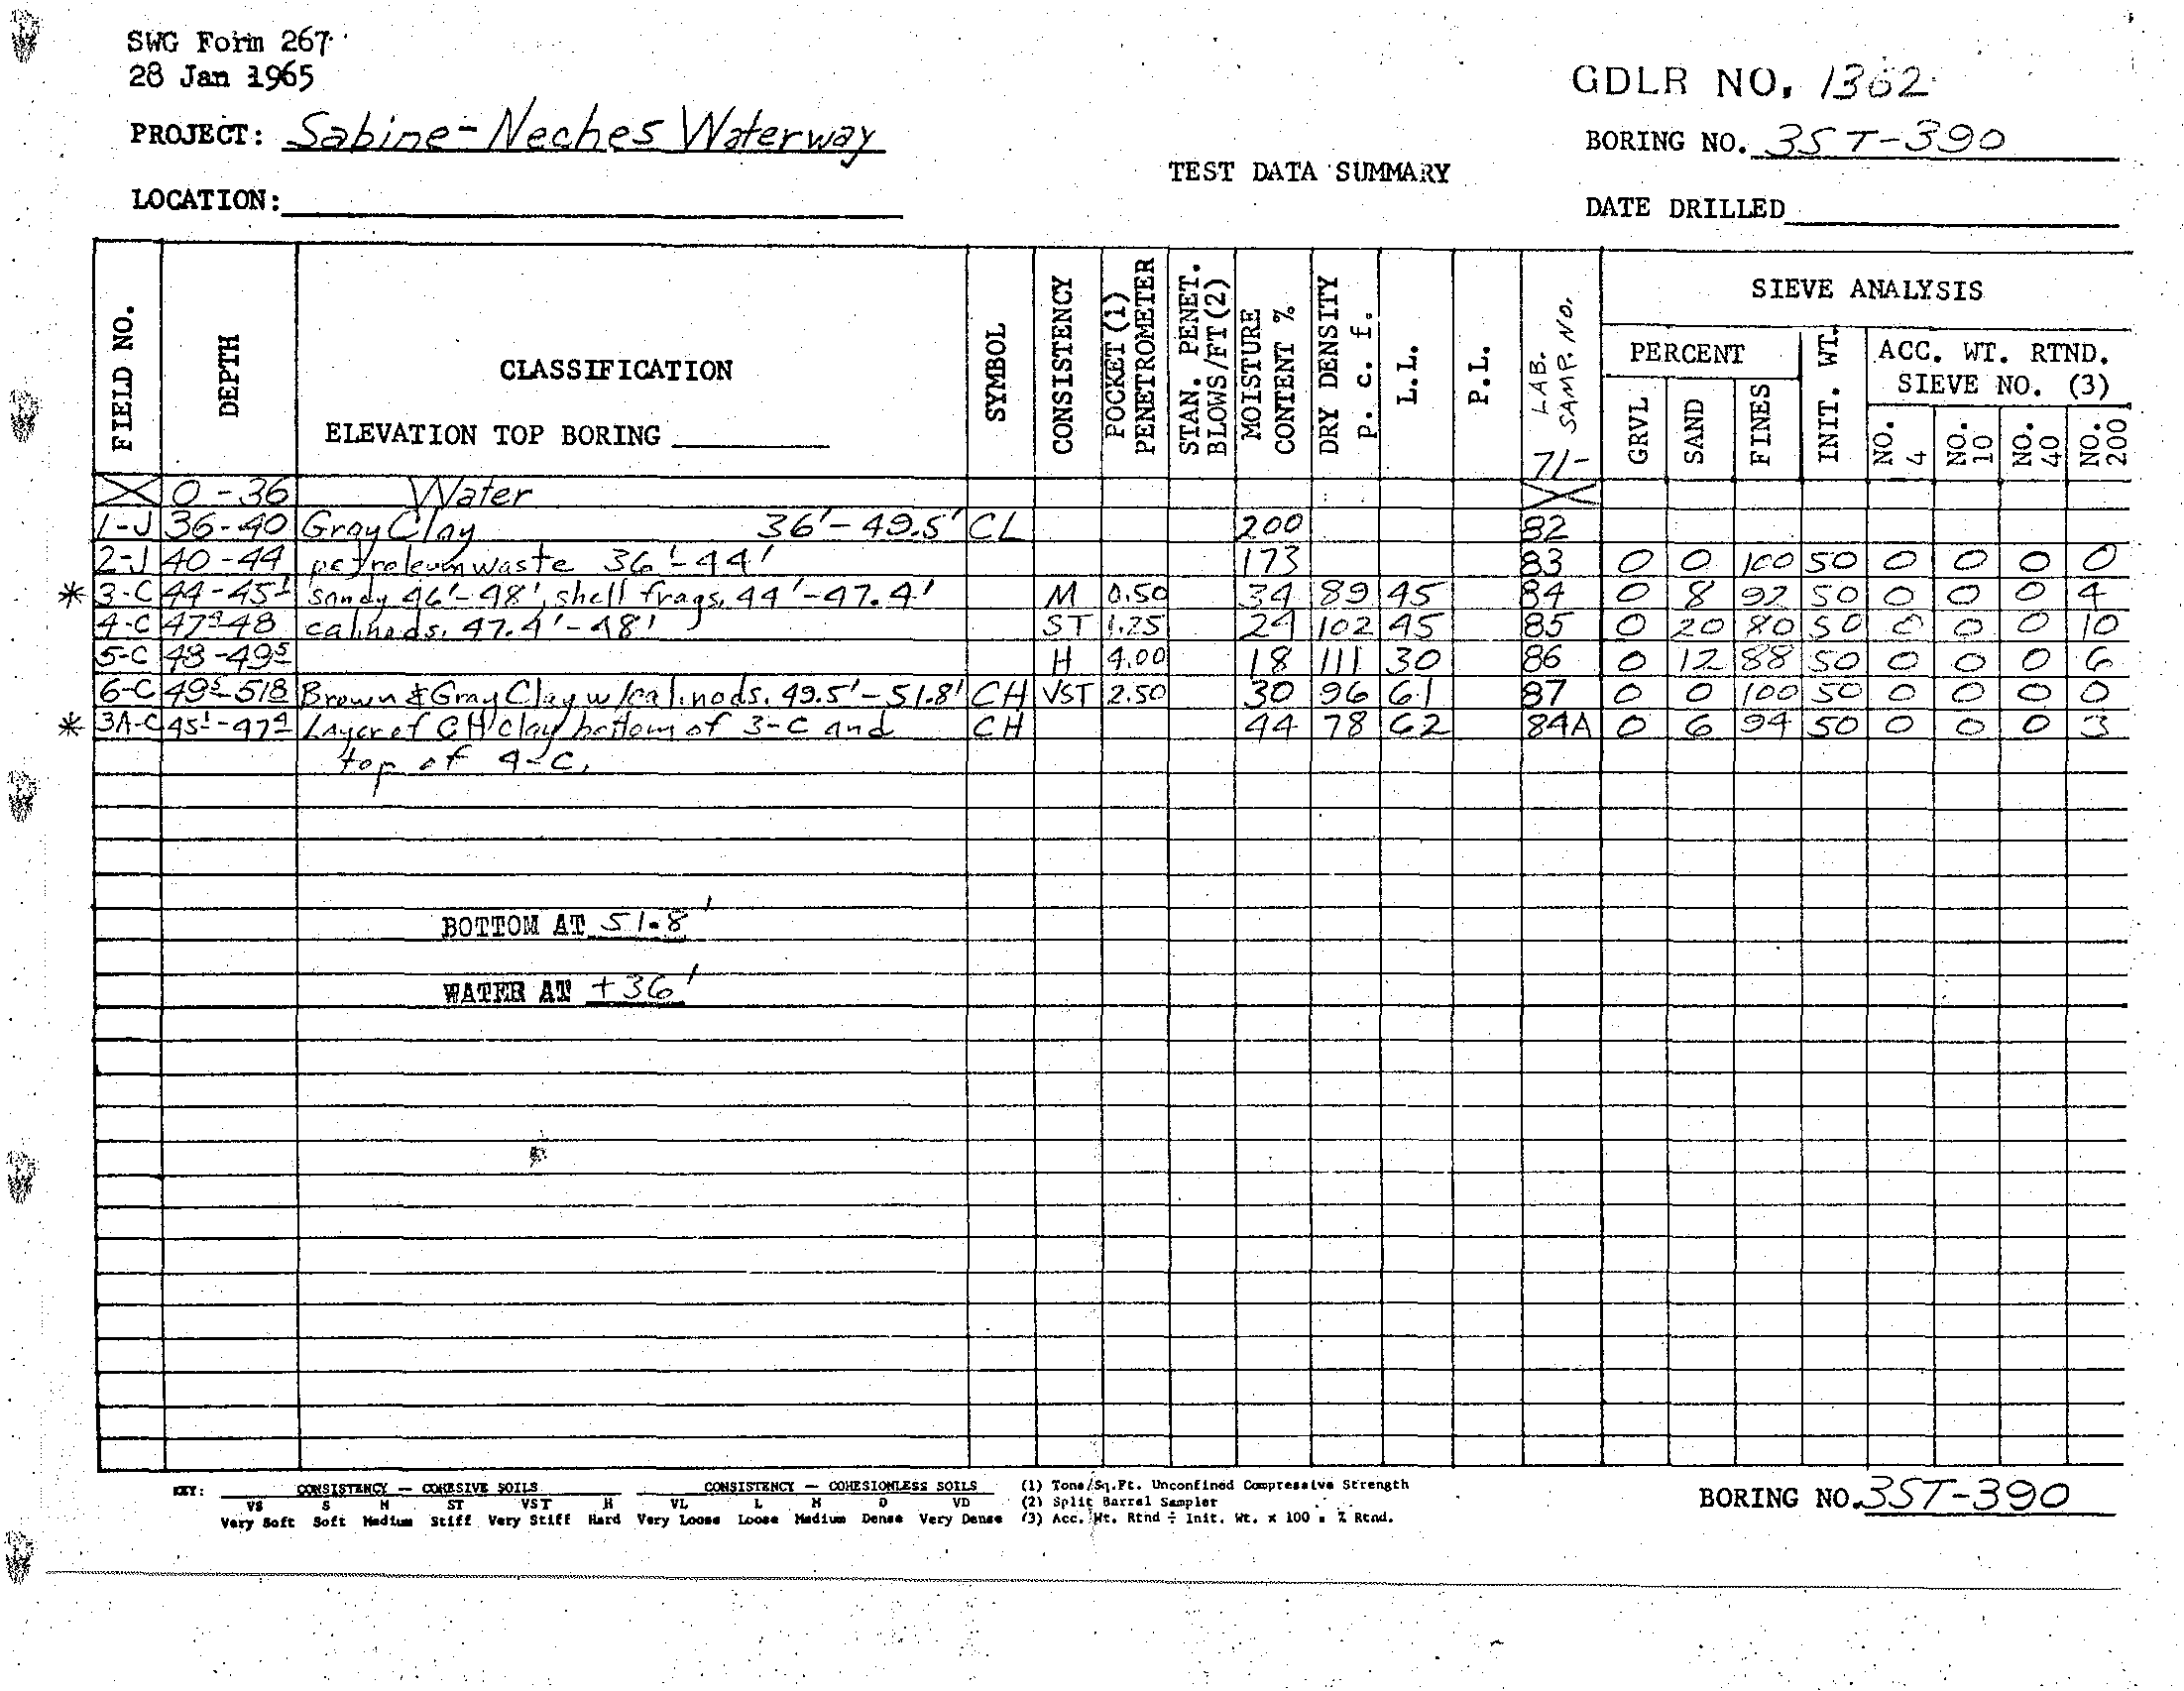 SWG Form 267
28 Jan 1965
GDLR NO. 1362
PROJECT: Sabine-Neches Waterway
BORING NO. 3ST-390
TEST DATA SUMMARY
LOCATION:
DATE DRILLED
FIELD NO. DEPTH CLASSIFICATION SYMBOL CONSISTENCY POCKET (1) PENETROMETER STAN. PENET. BLOWS/FT (2) MOISTURE CONTENT % DRY DENSITY P. c. f. L.L. P.L. LAB. SAMP. NO. 71- SIEVE ANALYSIS
PERCENT GRVL SAND FINES INIT. WT. ACC. WT. RTND. SIEVE NO. (3) NO. 4 NO. 10 NO. 40 NO. 200
ELEVATION TOP BORING
0-36 Water
1-J 36-40 Gray Clay 36'-49.5' CL 200 82
2-J 40-44 petroleum waste 36'-44' 173 83 0 0 100 50 0 0 0 0
* 3-C 44-45.1 sandy 46'-48', shell frags. 44'-47.4' M 0.50 34 89 45 84 0 8 92 50 0 0 0 4
4-C 47.4-48 cal.nods. 47.4'-48' ST 1.25 24 102 45 85 0 20 80 50 0 0 0 10
5-C 48-49.5 H 4.00 18 111 30 86 0 12 88 50 0 0 0 6
6-C 49.5-51.8 Brown & Gray Clay w/cal.nods. 49.5'-51.8' CH VST 2.50 30 96 61 87 0 0 100 50 0 0 0 0
* 3A-C 45.1-47.4 Layer of CH Clay bottom of 3-C and CH 44 78 62 84A 0 6 94 50 0 0 0 3
top of 4-C.
BOTTOM AT 51.8'
WATER AT +36'
KEY: CONSISTENCY — COHESIVE SOILS CONSISTENCY — COHESIONLESS SOILS (1) Tons/Sq.Ft. Unconfined Compressive Strength
VS S M ST VST H VL L M D VD (2) Split Barrel Sampler
Very Soft Soft Medium Stiff Very Stiff Hard Very Loose Loose Medium Dense Very Dense (3) Acc. Wt. Rtnd ÷ Init. Wt. x 100 = % Rtnd.
BORING NO. 3ST-390